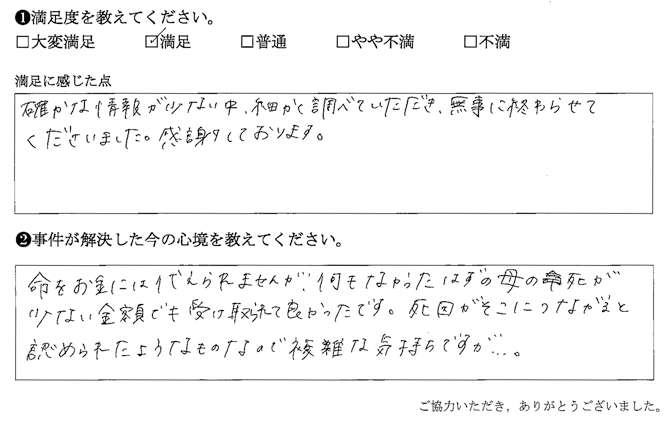 ❶満足度を教えてください。
□大変満足 ☑満足 □普通 □やや不満 □不満
満足に感じた点
確かな情報が少ない中、細かく調べていただき、無事に終わらせて
くださいました。感謝しております。
❷事件が解決した今の心境を教えてください。
命をお金には代えられませんが、何もなかったはずの母の死が
少ない金額でも受け取られて良かったです。死因がそこにつながると
認められたようなものなので複雑な気持ちですが…。
ご協力いただき，ありがとうございました。